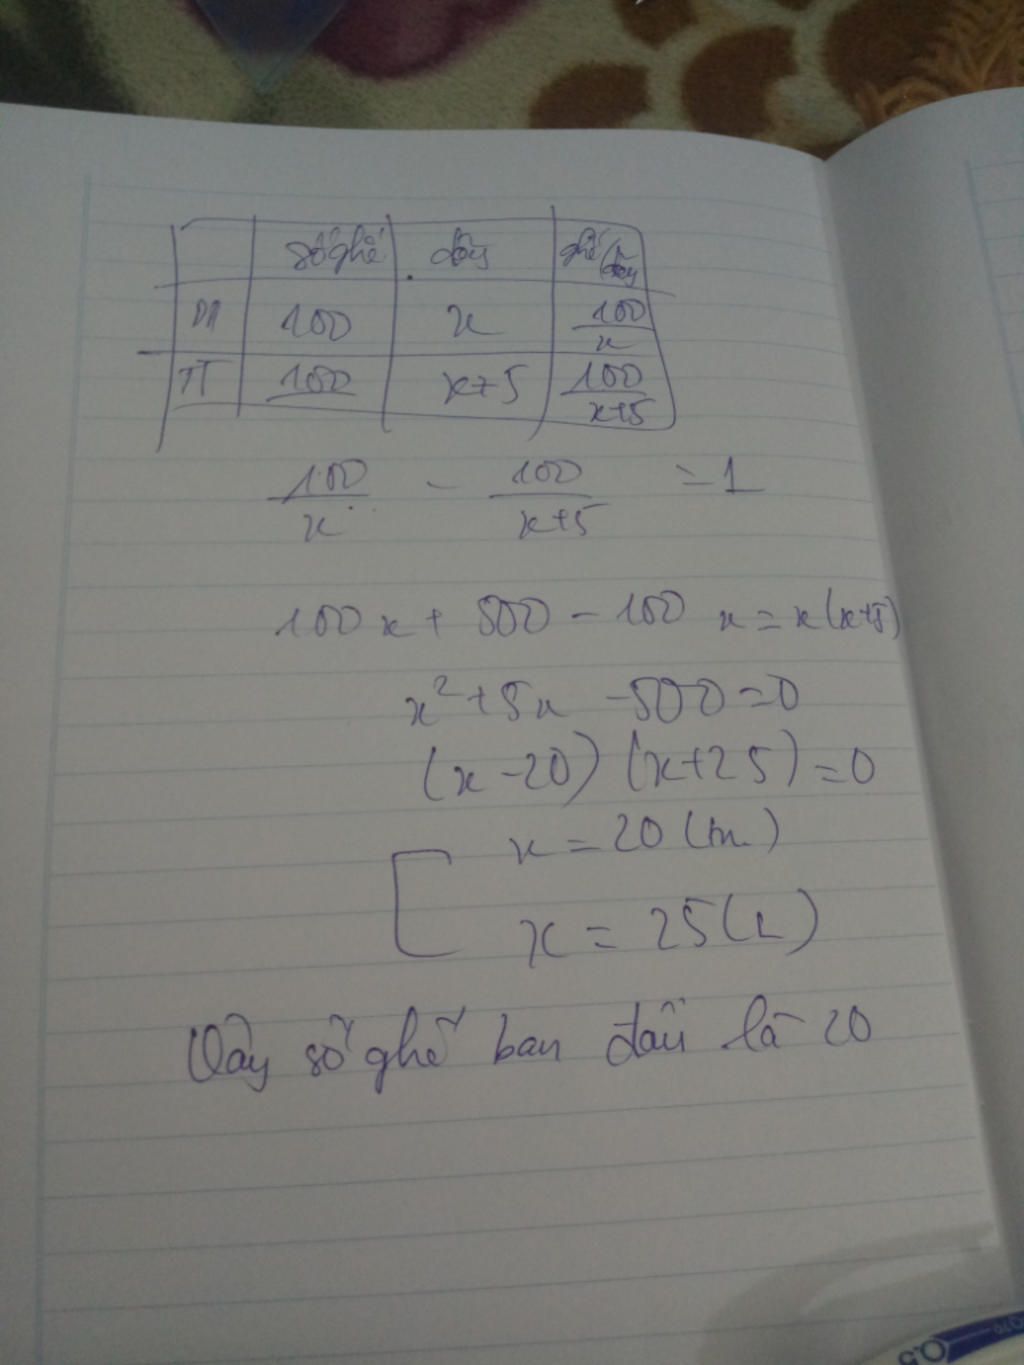 số ghế dãy ghế/dãy
DĐ 100 x 100/x
TT 100 x+5 100/x+5
100/x - 100/x+5 = 1
100x + 500 - 100x = x(x+5)
x² + 5x - 500 = 0
(x - 20) (x + 25) = 0
x = 20 (tm)
x = 25 (L)
Vậy số ghế ban đầu là 20
0.5